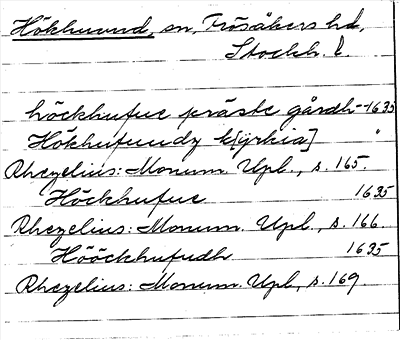 Hökhuvud, sn, Frösåkers hd,
Stockh. l.
höckhufue präste gårdh - 1635
Hökhufuudz k[yrkia] "
Rhezelius: Monum. Upl., s. 165.
Höckhufue 1635
Rhezelius: Monum. Upl., s. 166.
Hööckhufudh 1635
Rhezelius: Monum. Upl., s. 169.